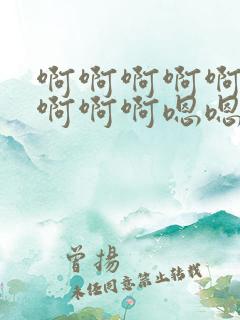 啊啊啊啊啊
啊啊啊嗯嗯
曾扬
未经同意禁止转载